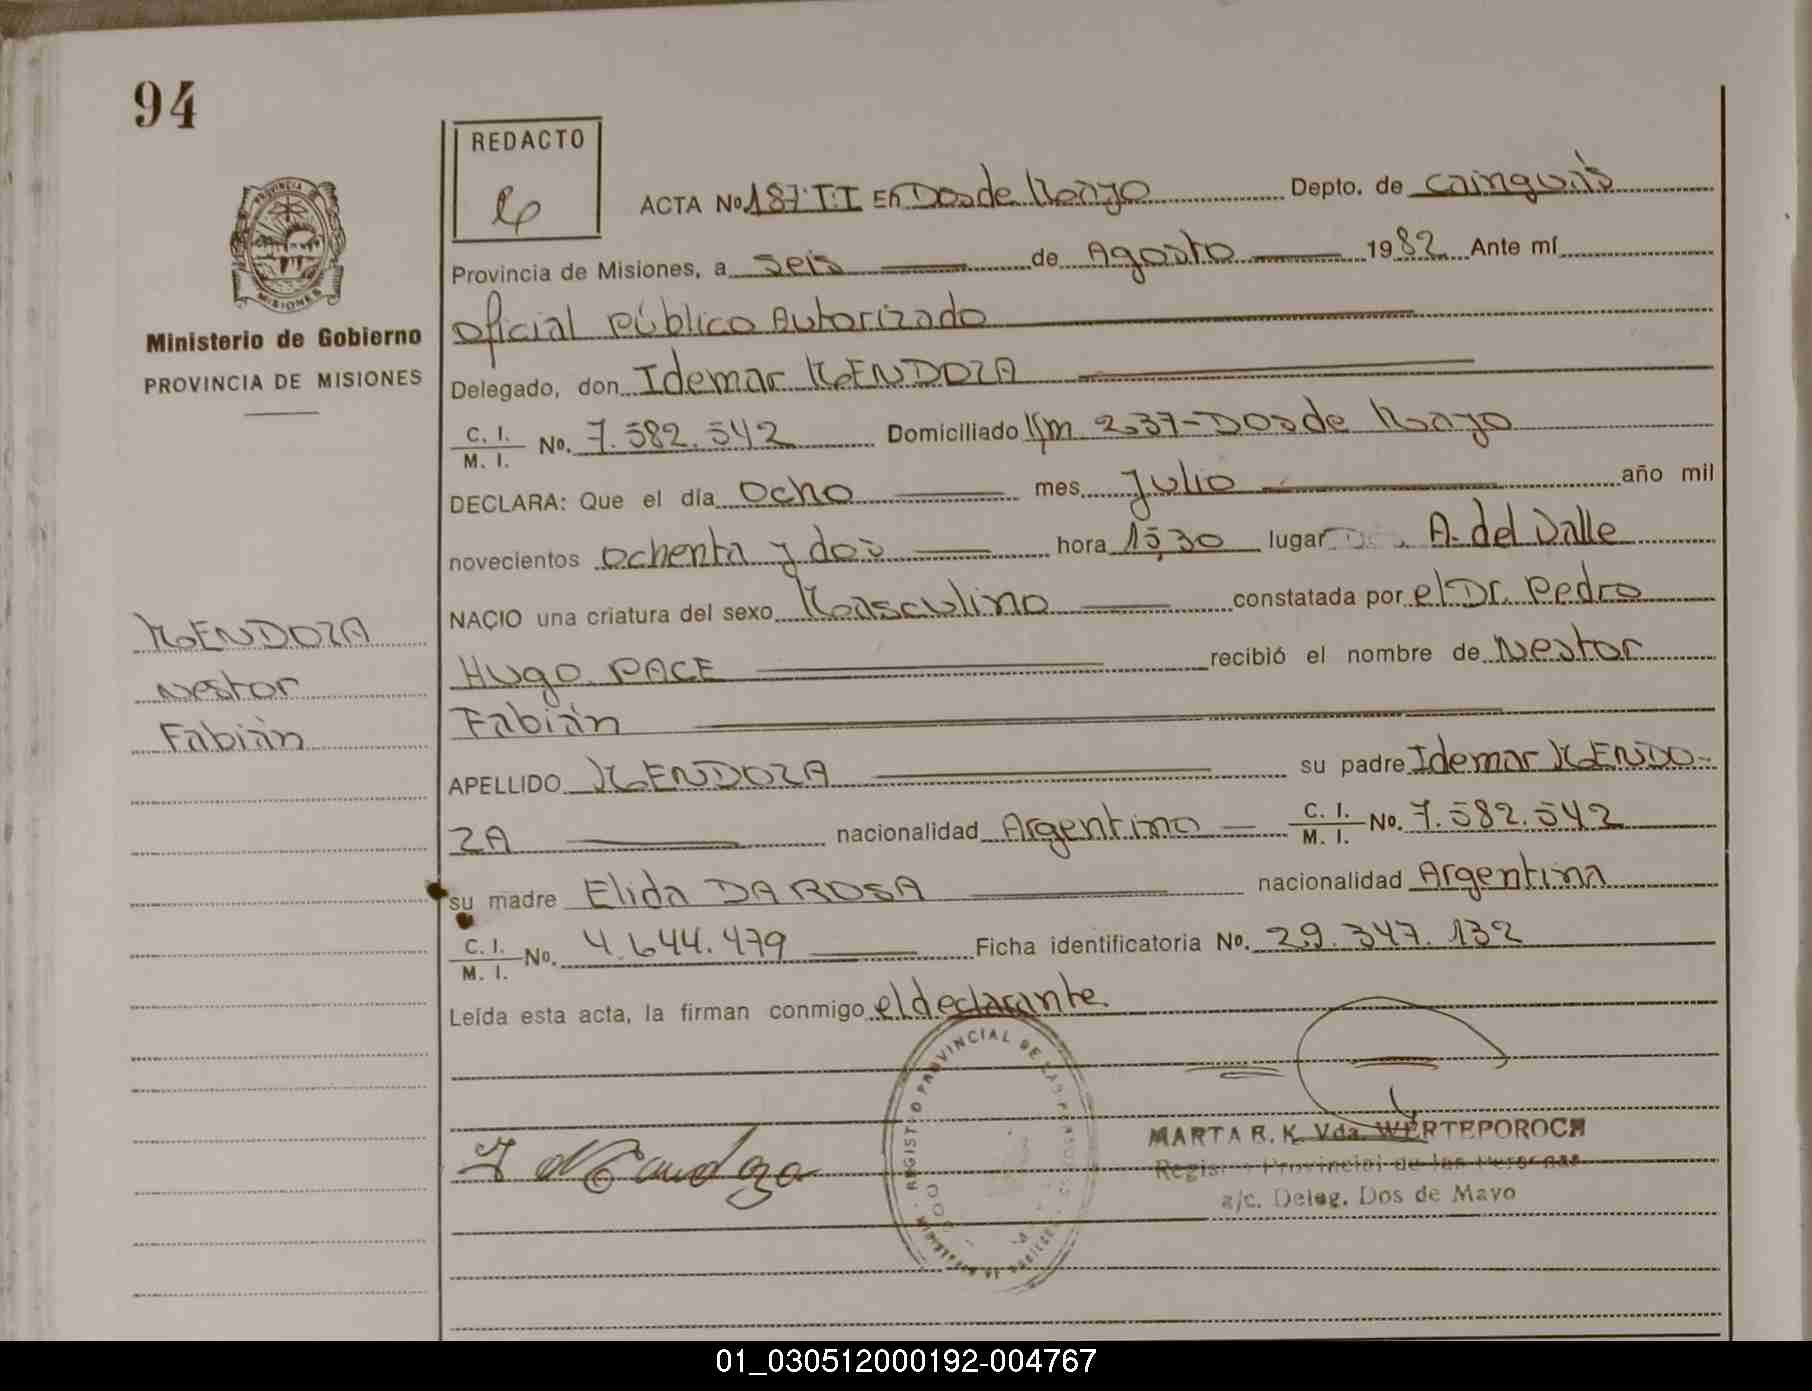 94
REDACTO
ACTA No 187 T.I En Dos de Mayo Depto. de Cainguás
Provincia de Misiones, a seis de Agosto 1982 Ante mí
Oficial Público Autorizado
Ministerio de Gobierno
PROVINCIA DE MISIONES
Delegado, don Idemar MENDOZA
C. I.
M. I. No. 7.582.542 Domiciliado Km 237-Dos de Mayo
DECLARA: Que el día Ocho mes Julio año mil
novecientos Ochenta y dos hora 15,30 lugar A. del Valle
NACIO una criatura del sexo Masculino constatada por el Dr. Pedro
Hugo PACE recibió el nombre de Nestor
Fabián
MENDOZA
Nestor
Fabián
APELLIDO MENDOZA su padre Idemar MENDO-
ZA nacionalidad Argentino C. I.
M. I. No. 7.582.542
su madre Elida DA ROSA nacionalidad Argentina
C. I.
M. I. No. 4.644.479 Ficha identificatoria No. 29.347.132
Leída esta acta, la firman conmigo el declarante.
REGISTRO PROVINCIAL DE LAS PERSONAS
MISIONES
MARTA R. K. Vda. WERTEPOROCH
Registro Provincial de las Personas
a/c. Deleg. Dos de Mayo
01_030512000192-004767